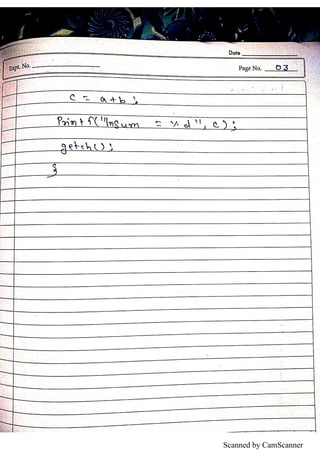 Date
Expt. No.
Page No. 03
c = a+b ;
Printf("\nSum = %d", c);
getch();
}
Scanned by CamScanner